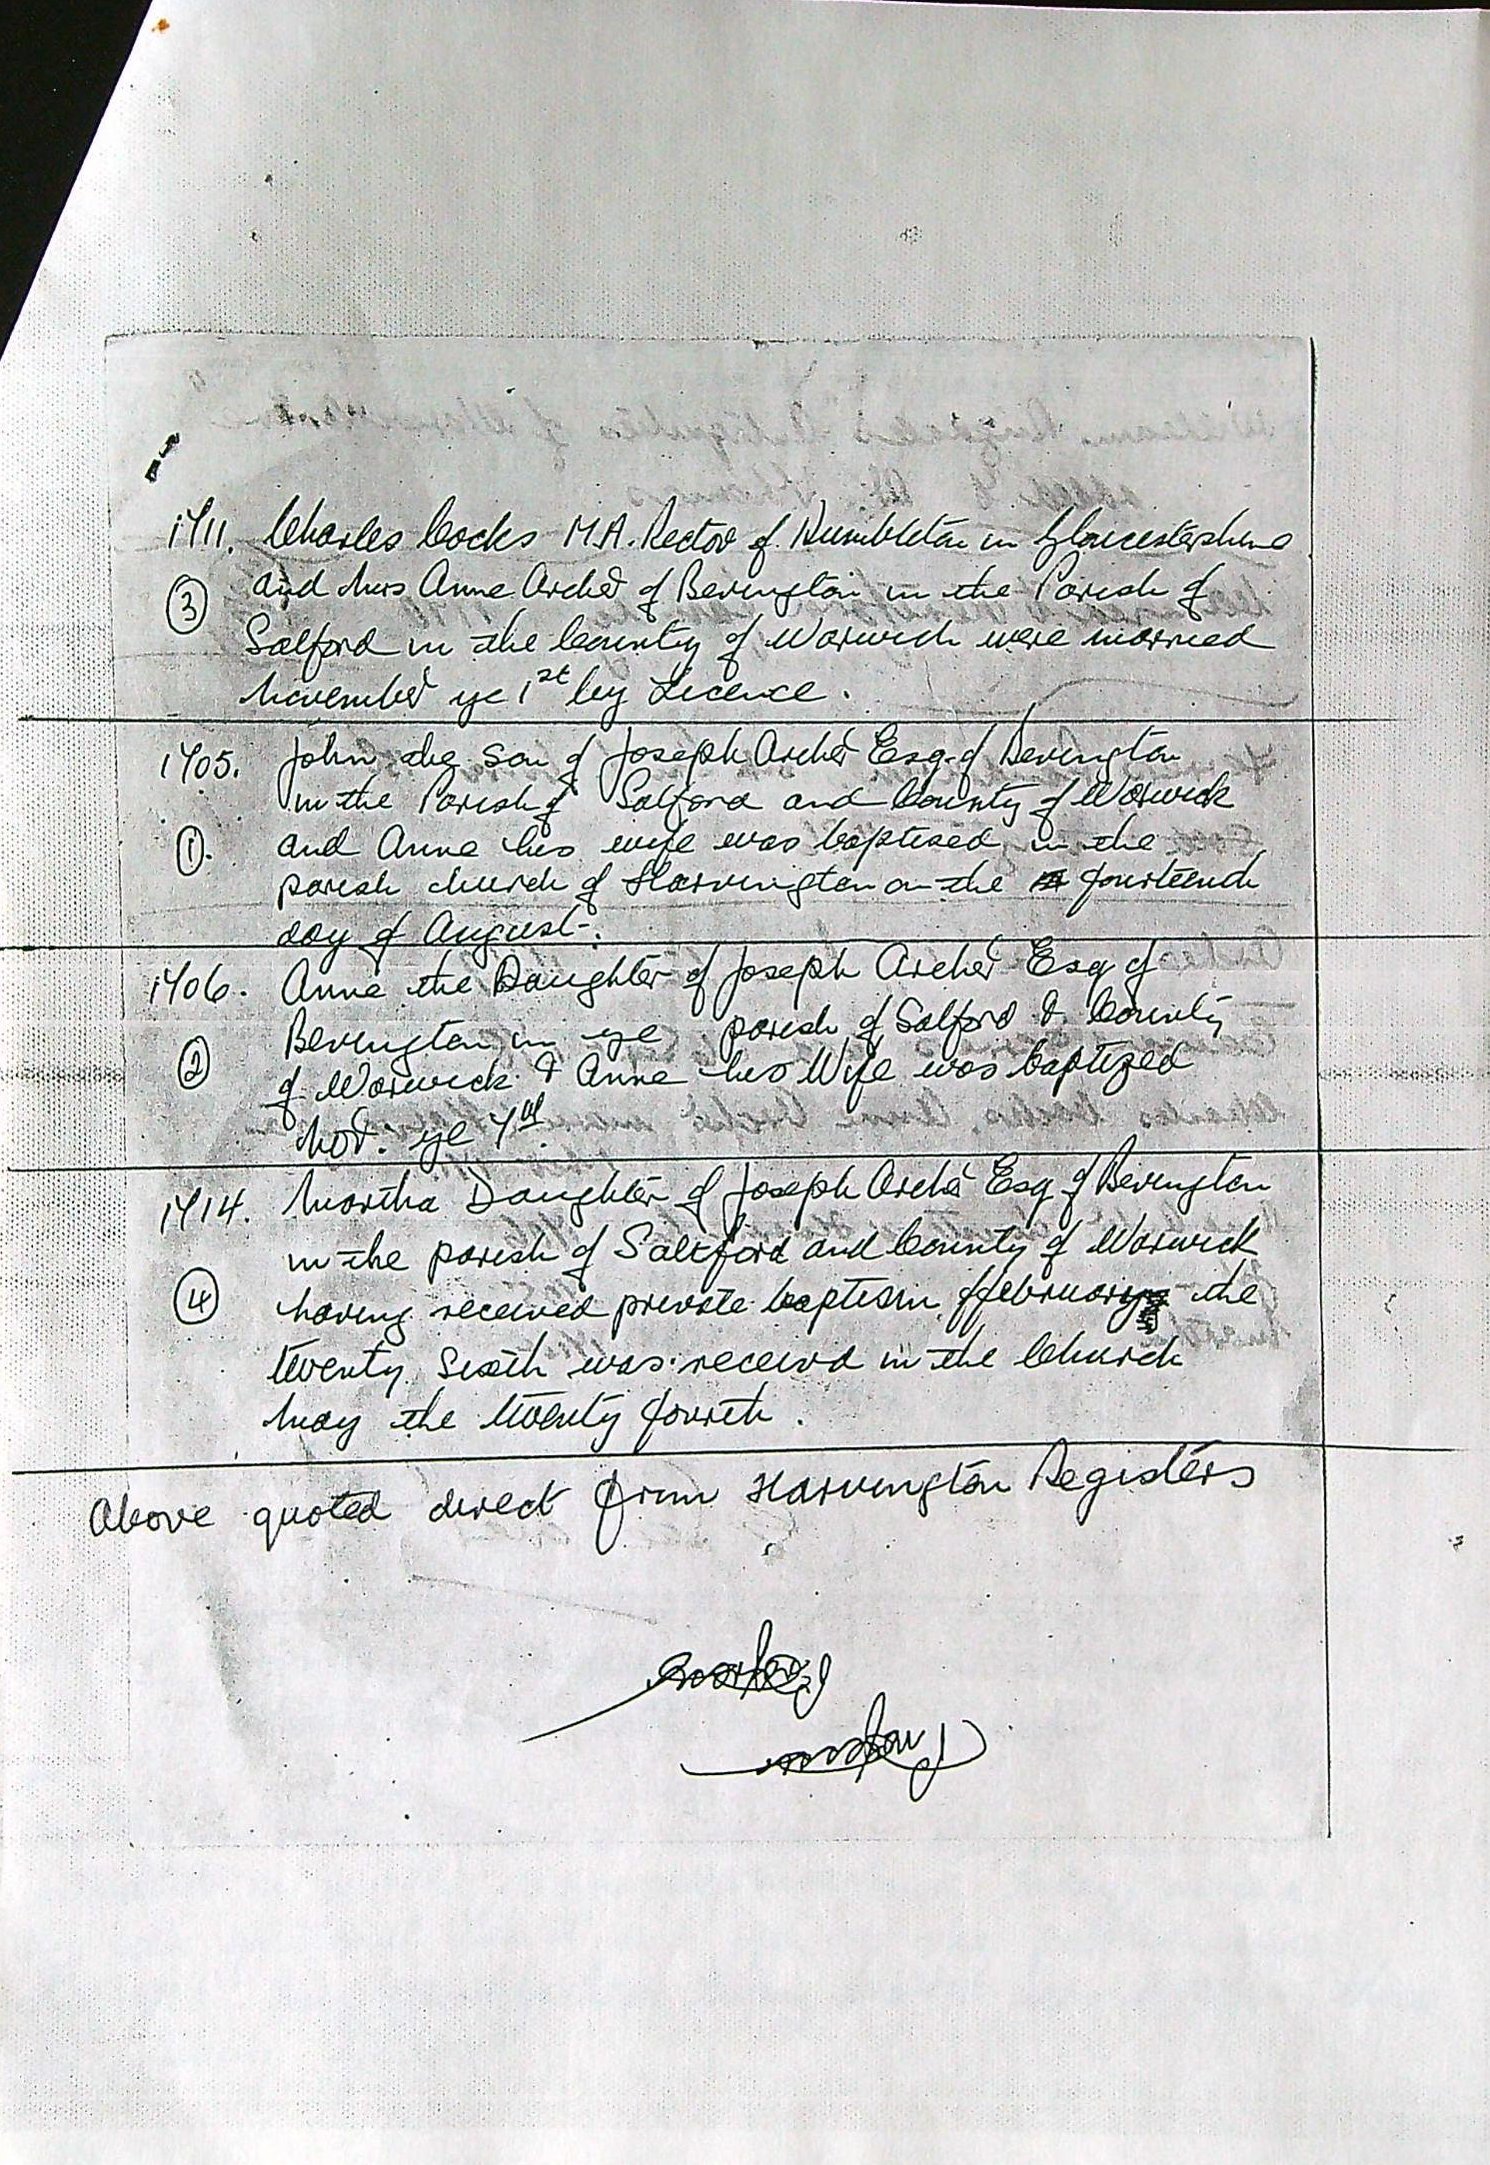 1711. Charles Cocks M.A. Rector of Dumbleton in Gloucestershire
③ and Mrs Anne Archer of Bevington in the Parish of
Salford in the County of Warwick were married
November ye 1st by Licence.
1705. John the son of Joseph Archer Esq. of Bevington
in the Parish of Salford and County of Warwick
①. and Anne his wife was baptised in the
parish church of Harvington on the fourteenth
day of August.
1706. Anne the Daughter of Joseph Archer Esq of
Bevington in ye parish of Salford & County
② of Warwick & Anne his Wife was baptized
Nov. ye 7th
1714. Martha Daughter of Joseph Archer Esq of Bevington
in the parish of Saltford and County of Warwick
④ having received private baptism ffebruary the
twenty sixth was received in the Church
May the twenty fourth.
Above quoted direct from Harvington Registers